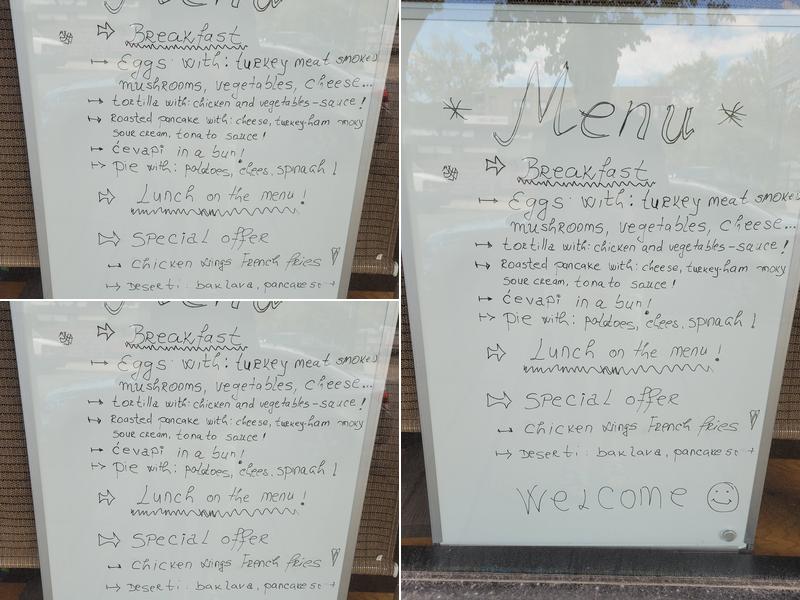 Breakfast
Eggs with: turkey meat smoked
mushrooms, vegetables, cheese...
tortilla with: chicken and vegetables - sauce!
Roasted pancake with: cheese, turkey-ham moky
sour cream, tonato sauce!
ćevapi in a bun!
Pie with: potatoes, chees, spinach!
Lunch on the menu!
Special offer
chicken wings French fries
Deserti: baklava, pancakes
Menu
Breakfast
Eggs with: turkey meat smoked
mushrooms, vegetables, cheese...
tortilla with: chicken and vegetables - sauce!
Roasted pancake with: cheese, turkey-ham moky
sour cream, tonato sauce!
ćevapi in a bun!
Pie with: potatoes, chees, spinach!
Lunch on the menu!
Special offer
chicken wings French fries
Deserti: baklava, pancakes
Welcome
Breakfast
Eggs with: turkey meat smoked
mushrooms, vegetables, cheese...
tortilla with: chicken and vegetables - sauce!
Roasted pancake with: cheese, turkey-ham moky
sour cream, tonato sauce!
ćevapi in a bun!
Pie with: potatoes, chees, spinach!
Lunch on the menu!
Special offer
chicken wings French fries
Deserti: baklava, pancakes